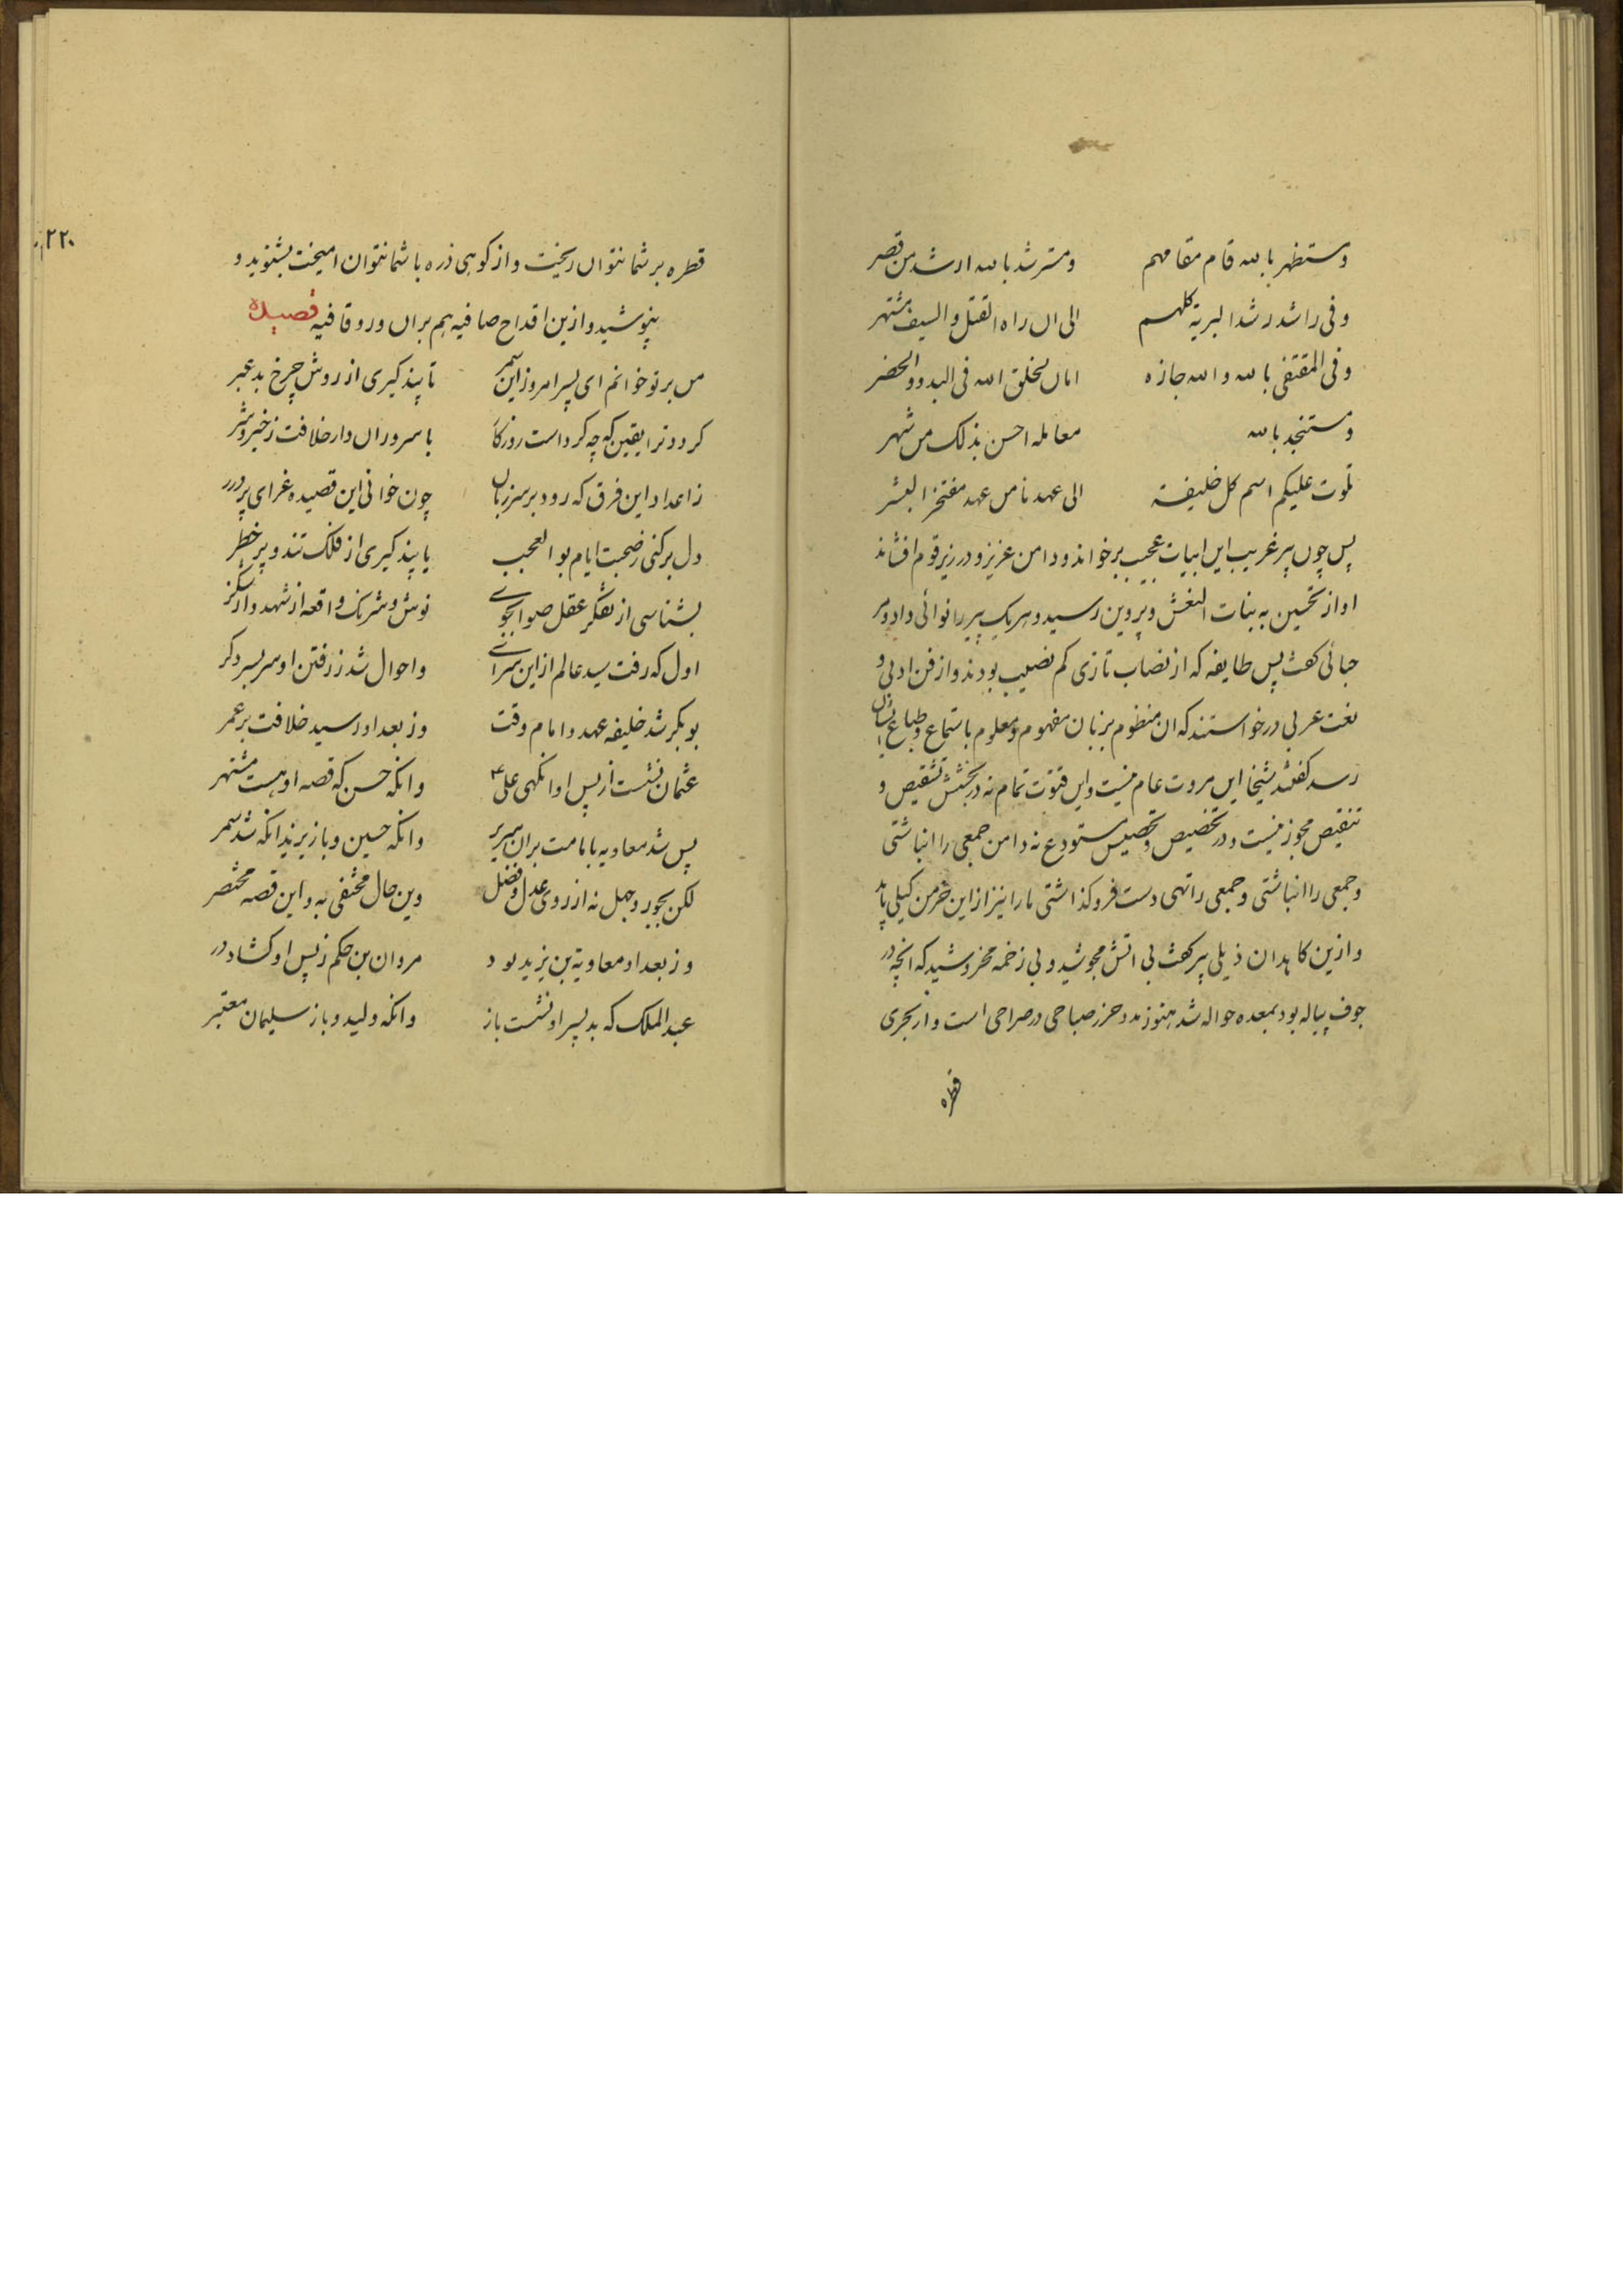 ومستظهر بالله قام مقامهم ومسترشد بالله ارشد من قصر
وفی راشد رشد البریة کلهم الی ان راه القتل والسیف مشتهر
وفی المقتفی بالله والله جازه امان لخلق الله فی البدو والحضر
ومستنجد بالله معامله احسن بذلک من شهر
تلوت علیکم اسم کل خلیفة الی عهدنا من عهد مفتخر البشر
پس چون پیر غریب این ابیات عجیب برخواند ودامن عزیز و در زیر قوم افشاند
اواز تحسین به بنات النعش و پروین رسید و هریک پیر را نوائی داد و مر
جبائی گفت پس طایفه که از نصاب تازی کم نصیب بودند و از فن ادبی و
لغت عربی درخواستند که ان منظوم بزبان مفهوم و معلوم باستماع و طباع ایشان
رسد گفتند شیخا این مروت عام نیست و این فتوت تمام نه در بخشش تشقیص و
تنقیص مجوز نیست و در تخصیص و تحصیص مستودع نه دامن جمعی را انباشتی
وجمعی را انباشتی وجمعی را تهی دست فرو کذاشتی ما را نیز از این خرمن کیلی باید
و ازین کاهدان ذیلی پیر گفت بی اتش مجوشید و بی زخمه مخروشید که انچه در
جوف پیاله بود بمعده حواله شد هنوز مدد حرز صباحی در صراحی است و از بحری
قطره
۲۲۰
قطره بر شما نتوان ریخت و از کوهی ذره با شما نتوان امیخت بشنوید و
بنوشید و ازین اقداح صافیه هم بران ورو قافیه قصیده
من بر تو خوانم ای پسر امروز این سمر تا پند کیری از روش چرخ بد عبر
کردد ترا یقین که چه کرداست روزکار با سروران دار خلافت ز خیر و شر
ز اعداد این فرق که رود بر سر زبان چون خوانی این قصیده غرای پر درر
دل بر کنی ز صحبت ایام بو العجب یا پند کیری از فلک تند و پر خطر
بشناسی از تفکر عقل صواب جوی نوش و شرنک واقعه از شهد و از شکر
اول که رفت سید عالم از این سرای واحوال شد ز رفتن او سر بسر دکر
بوبکر شد خلیفه عهد و امام وقت وز بعد او رسید خلافت بر عمر
عثمان نشست از پس او انکهی علی وانکه حسن که قصه او هست مشتهر
پس شد معاویه بامامت بران سریر وانکه حسین و باز یزید انکه شد سمر
لکن بجور و جهل نه از روی عدل و فضل وین حال مختفی به و این قصه مختصر
وز بعد او معاویة بن یزید بود مروان بن حکم ز پس او کشاد در
عبد الملک که بد پسر او نشست باز وانکه ولید و باز سلیمان معتبر